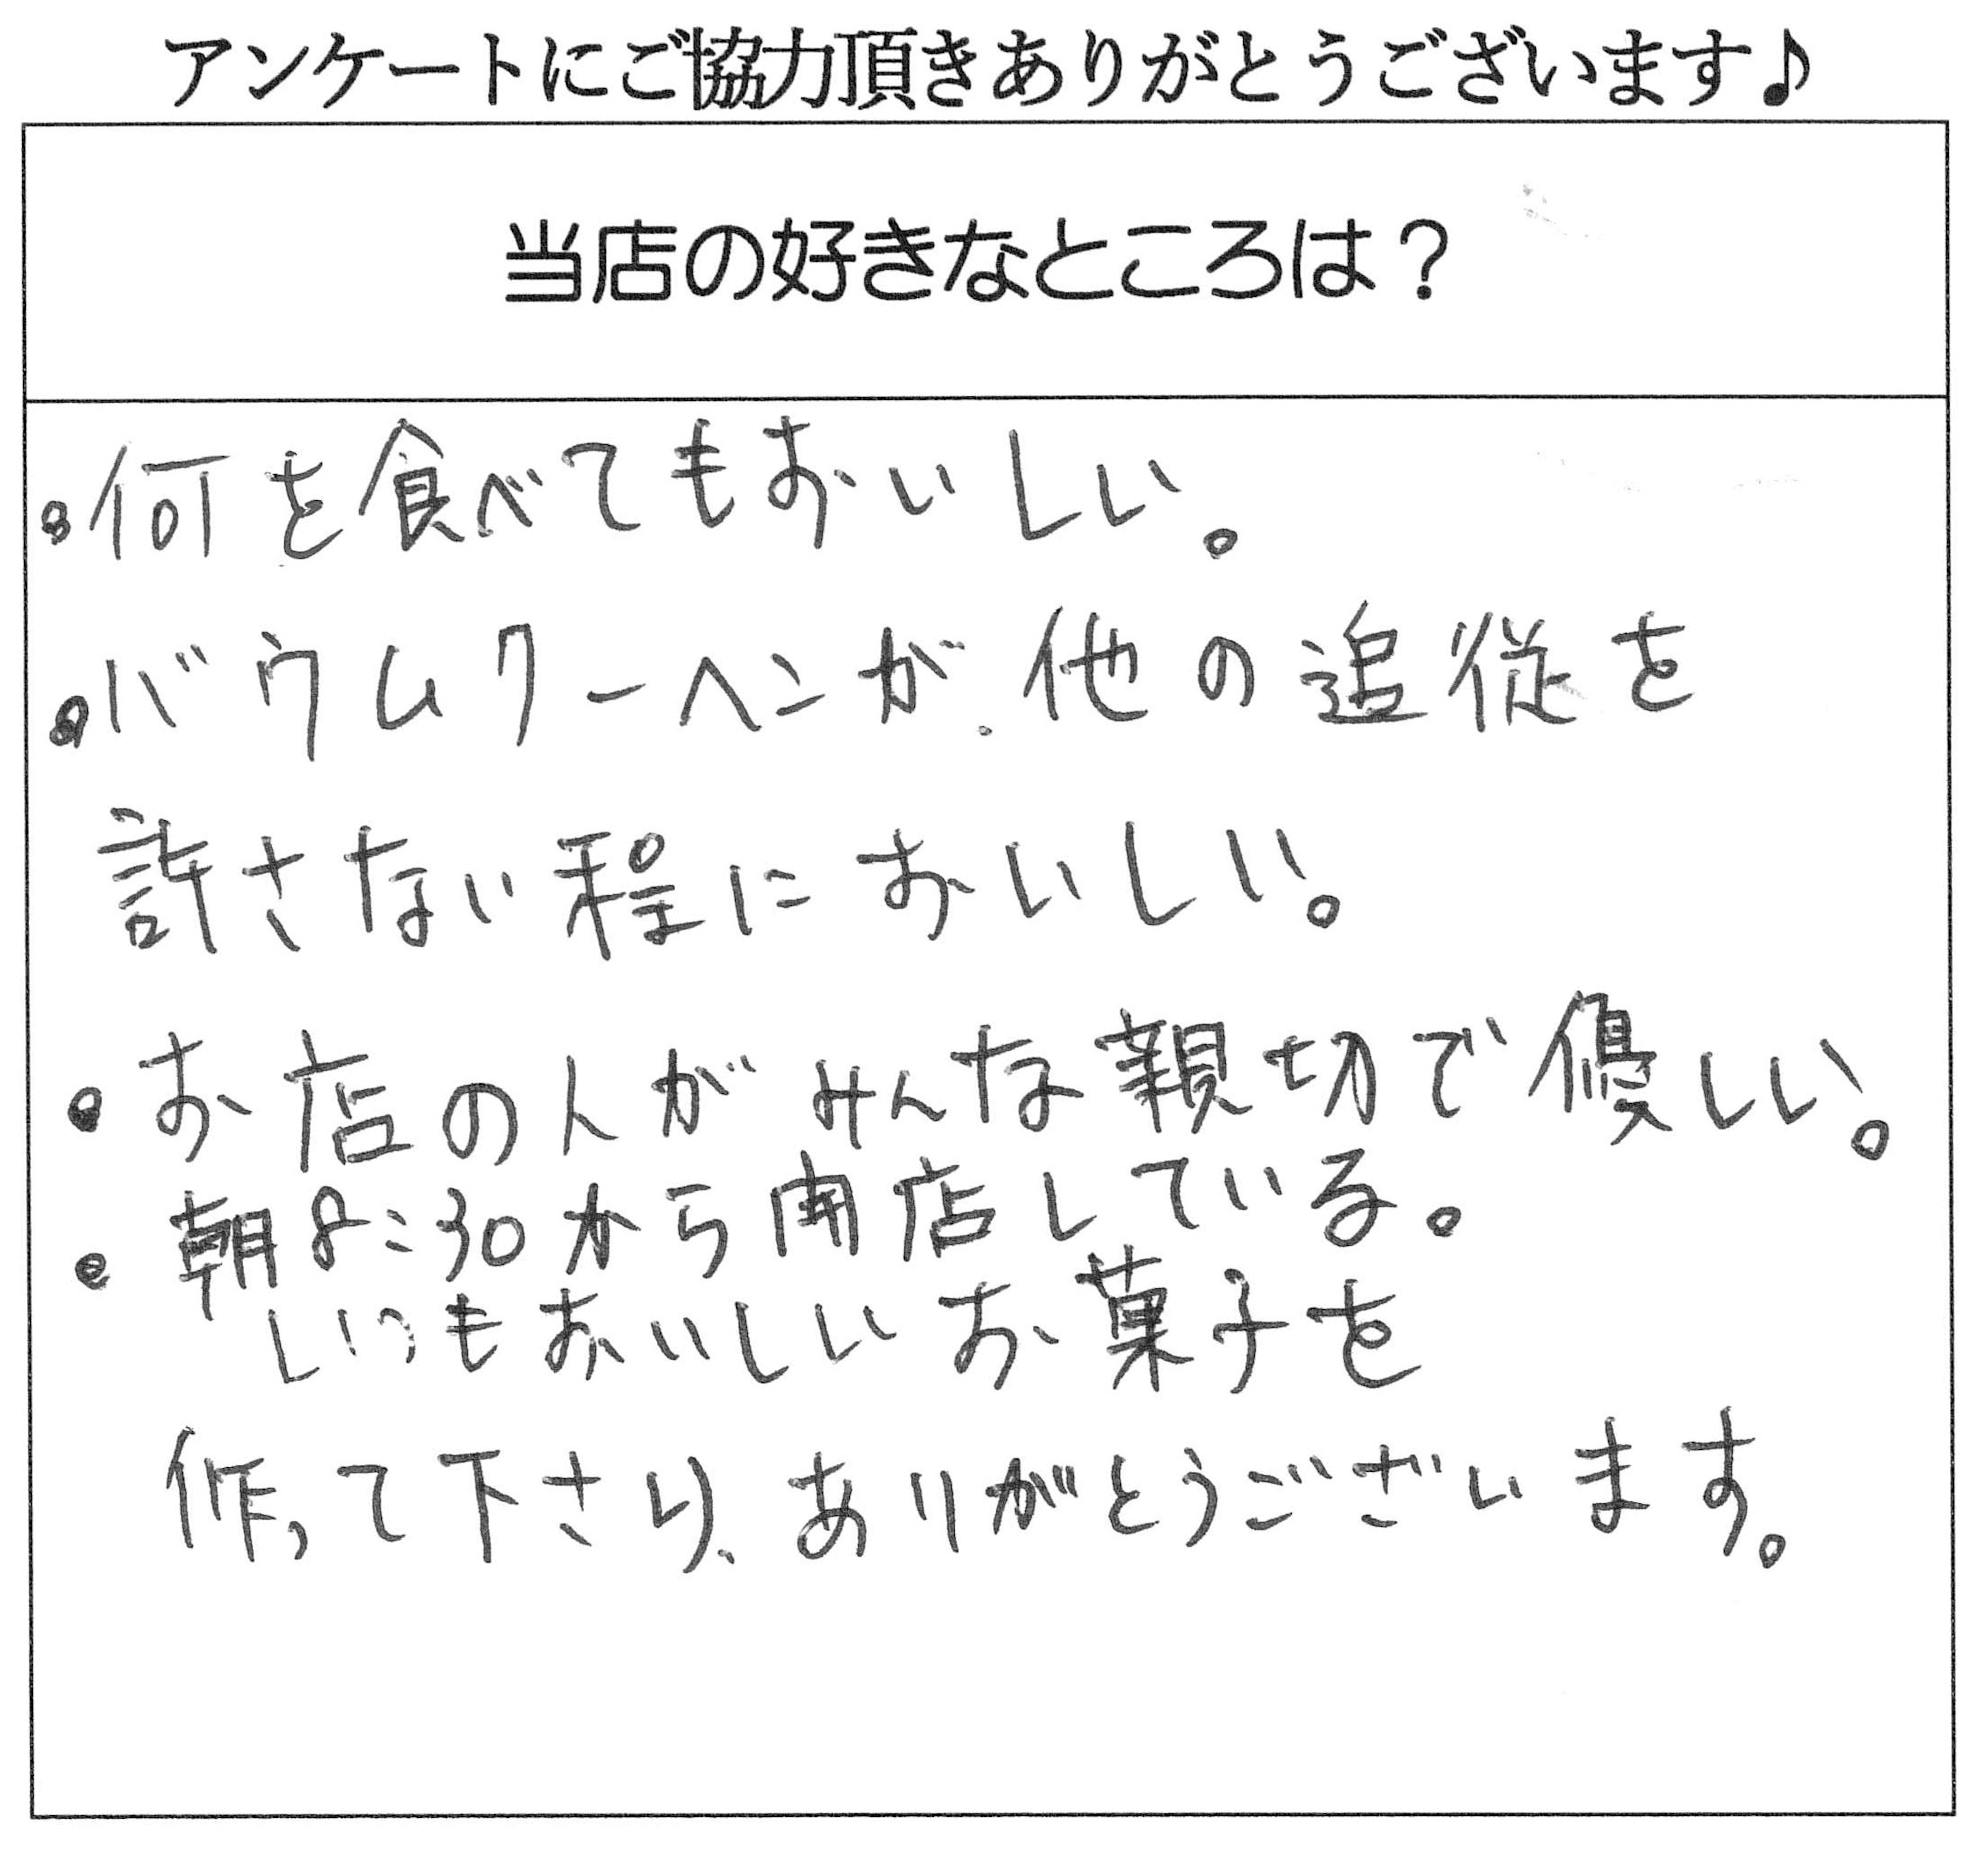 アンケートにご協力頂きありがとうございます♪
当店の好きなところは？
・何を食べてもおいしい。
・バウムクーヘンが他の追従を
許さない程においしい。
・お店の人がみんな親切で優しい。
・朝8:30から開店している。
いつもおいしいお菓子を
作って下さり、ありがとうございます。